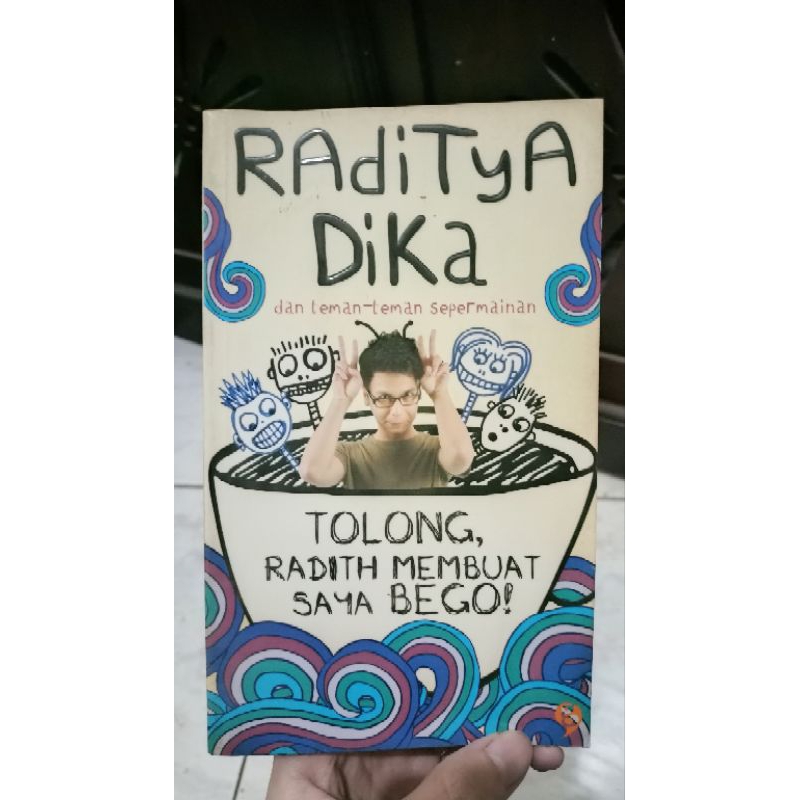 RAdiTyA
DiKa
dan teman-teman sepermainan
TOLONG,
RADITH MEMBUAT
SAYA BEGO!